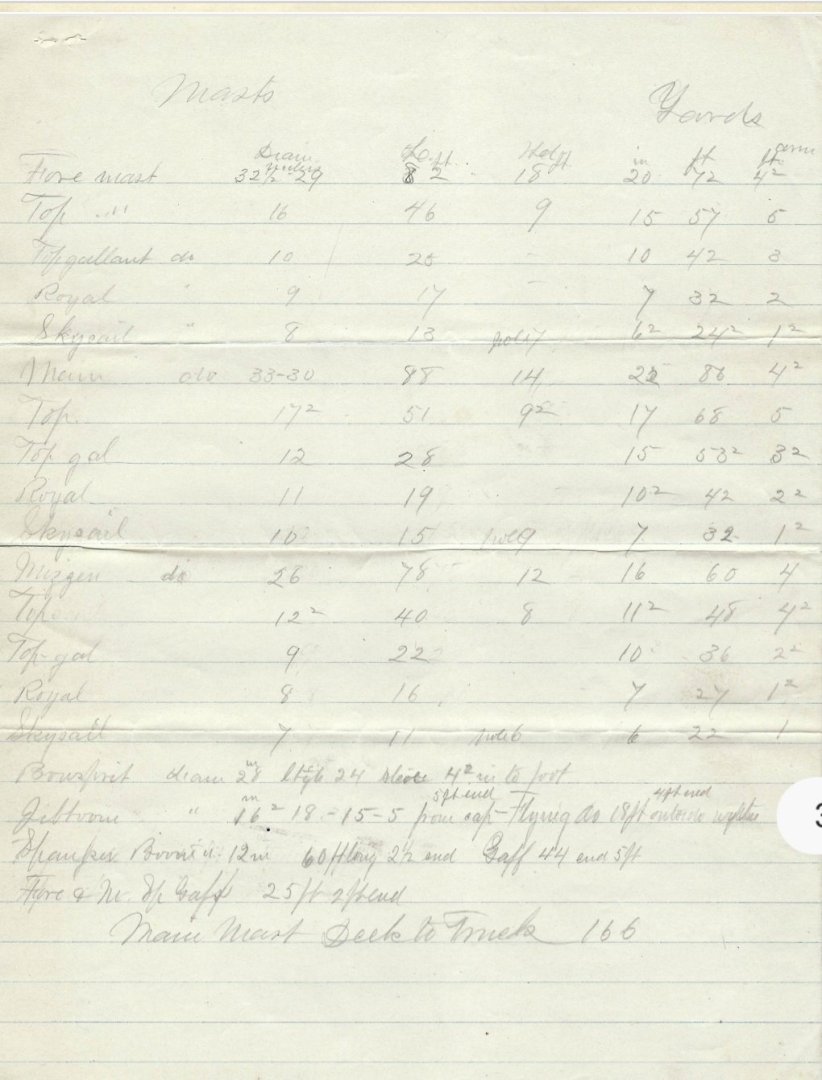 Masts Yards
Diam inches Lg. ft. Hd ft in ft arm ft
Fore mast 32½-29 82 18 20 72 4²
Top " 16 46 9 15 57 5
Topgallant do 10 25 - 10 42 3
Royal " 9 17 - 7 32 2
Skysail " 8 13 pole 7 6² 24² 1²
Main do 33-30 88 14 22 86 4²
Top. 17² 51 9² 17 68 5
Top gal 12 28 15 53² 3²
Royal 11 19 10² 42 2²
Skysail 10 15 pole 9 7 32 1²
Mizzen do 26 78 12 16 60 4
Top 12² 40 8 11² 48 4²
Top-gal 9 22 10 36 2²
Royal 8 16 7 27 1²
Skysail 7 11 pole 6 6 22 1
Bowsprit diam 28 in 24 4² in to foot
5 ft end 4 ft end
Jibboom " 16² in 18-15-5 from cap-Flying do 18ft outside
Spanker Boom 12 in 60 ft long 2½ end Gaff 44 end 5ft
Fore & M. Sp Gaff 25 ft 2ft end
Main Mast Deck to Truck 166
3